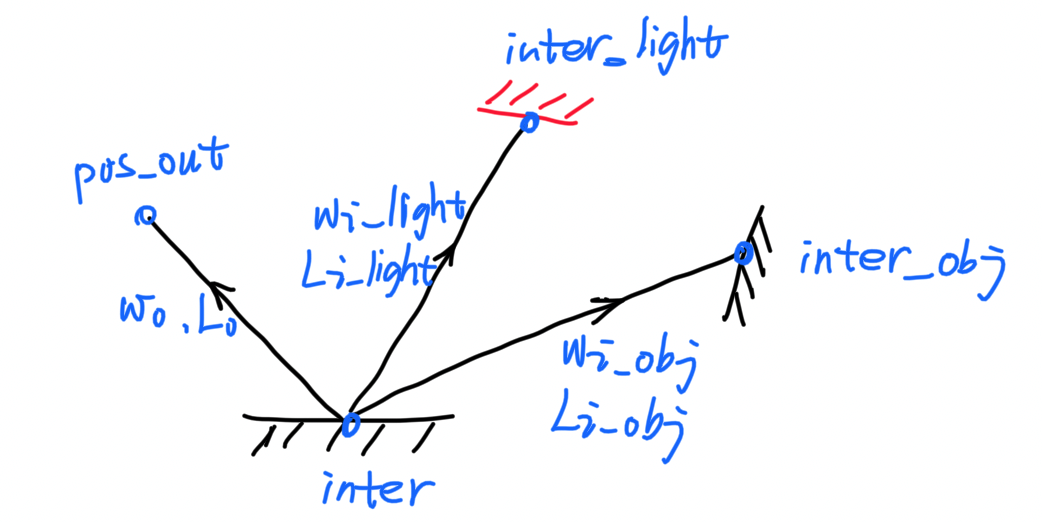 inter_light
pos_out
wi_light
Li_light
wo, Lo
inter_obj
wi_obj
Li_obj
inter